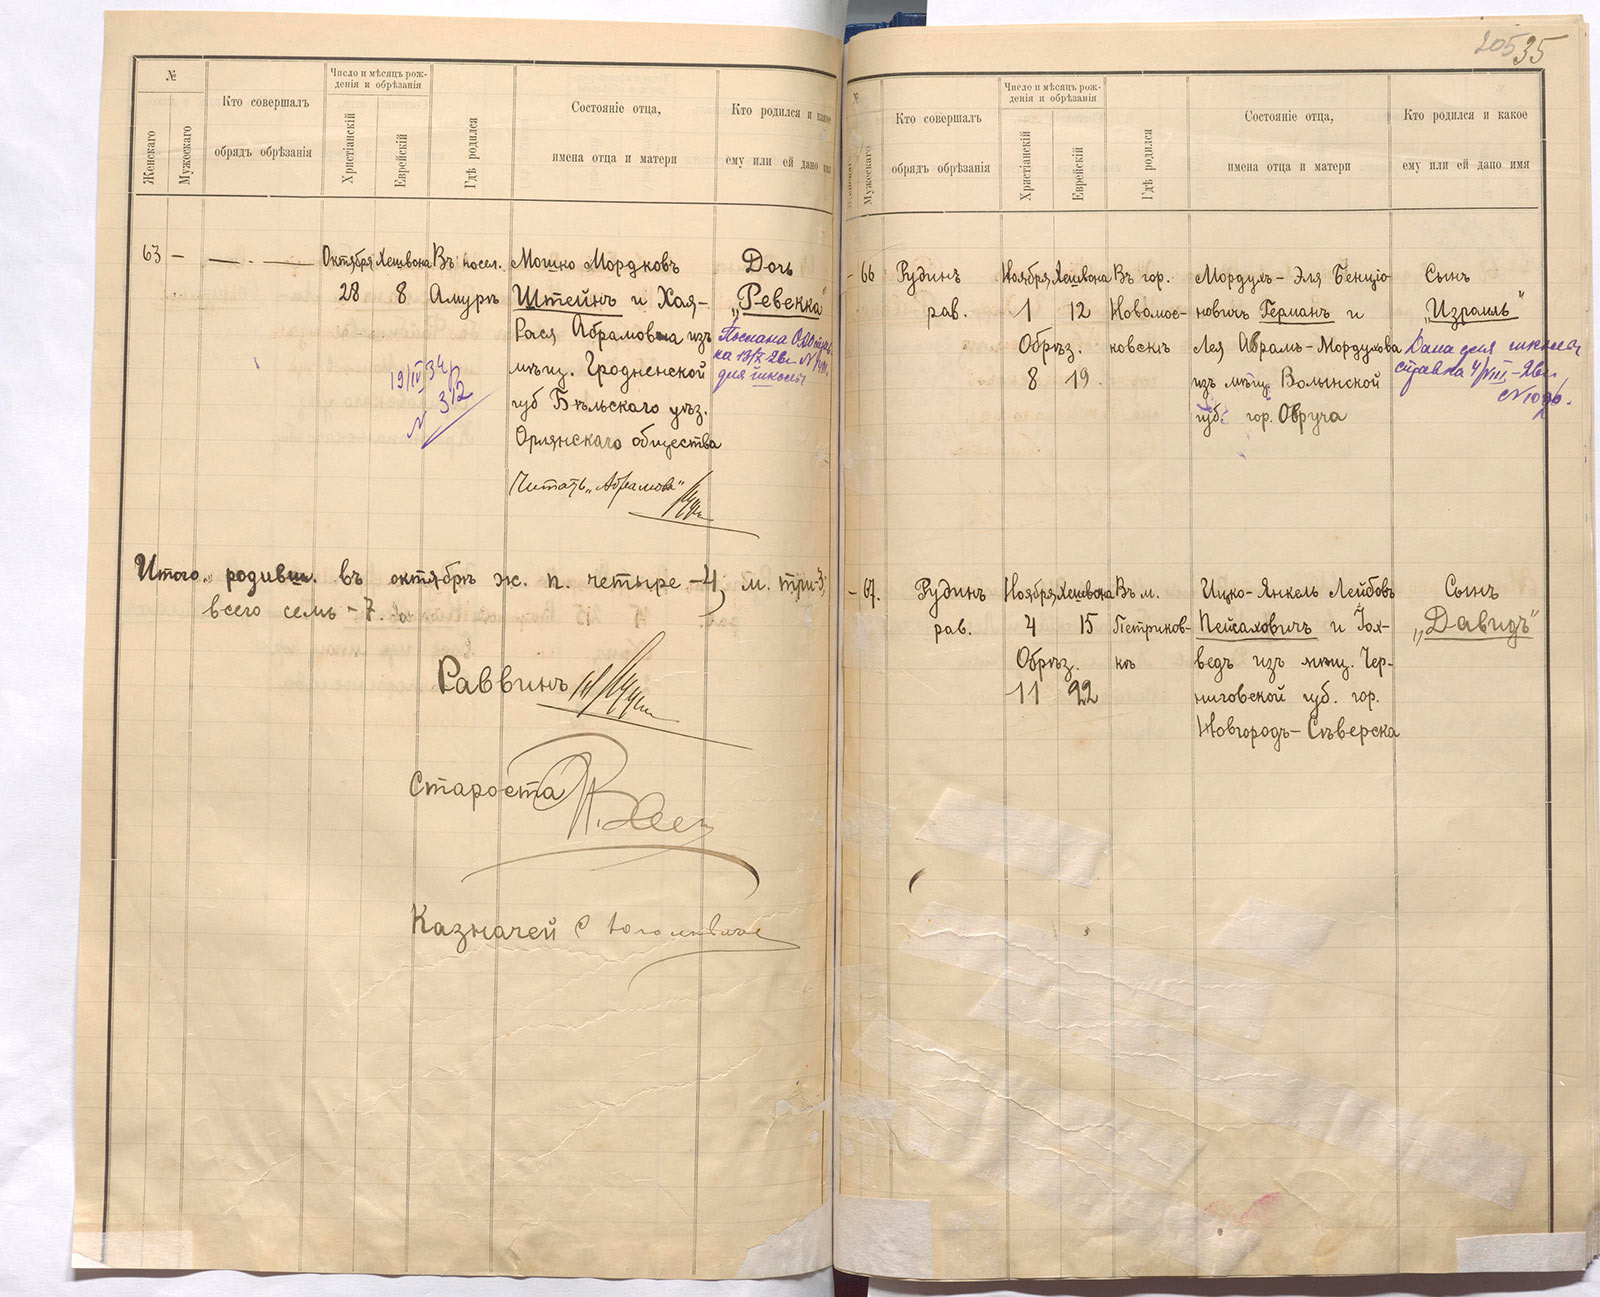 №
Женскаго
Мужескаго
Кто совершалъ
обрядъ обрѣзанія
Число и мѣсяцъ рож-
денія и обрѣзанія
Христіанскій
Еврейскій
Гдѣ родился
Состояніе отца,
имена отца и матери
Кто родился и какое
ему или ей дано имя
63 —
Октября
28
Хешвона
8
Въ посел.
Амурѣ
Мошко Мордковъ
Штейнъ и Хая-
Рася Абрамовна изъ
мѣщ. Гродненской
губ Бѣльскаго уѣз.
Орлянскаго общества
Читать „Абрамова"
Дочь
„Ревекка"
для школы
19/IV 34
N 312
Итого родивш. въ октябрѣ ж. п. четыре -4, м. три-3,
всего семь -7.
Раввинъ
Староста
Казначей
205 35
№
Мужескаго
Кто совершалъ
обрядъ обрѣзанія
Число и мѣсяцъ рож-
денія и обрѣзанія
Христіанскій
Еврейскій
Гдѣ родился
Состояніе отца,
имена отца и матери
Кто родился и какое
ему или ей дано имя
- 66
Рудинъ
рав.
Ноября
1
Обрѣз.
8
Хешвона
12
19
Въ гор.
Новомос-
ковскѣ
Мордухъ-Эля Бенціо-
новичъ Германъ и
Лея Абрамъ-Мордухова
изъ мѣщ. Волынской
губ. гор. Овруча
Сынъ
„Израиль"
Дана для школы
справка 4/VIII
- 67.
Рудинъ
рав.
Ноября
4
Обрѣз.
11
Хешвона
15
22
Въ м.
Петриков-
кѣ
Ицко-Янкель Лейбовъ
Пейсаховичъ и Іох-
ведъ изъ мѣщ. Чер-
ниговской губ. гор.
Новгородъ-Сѣверска
Сынъ
„Давидъ"